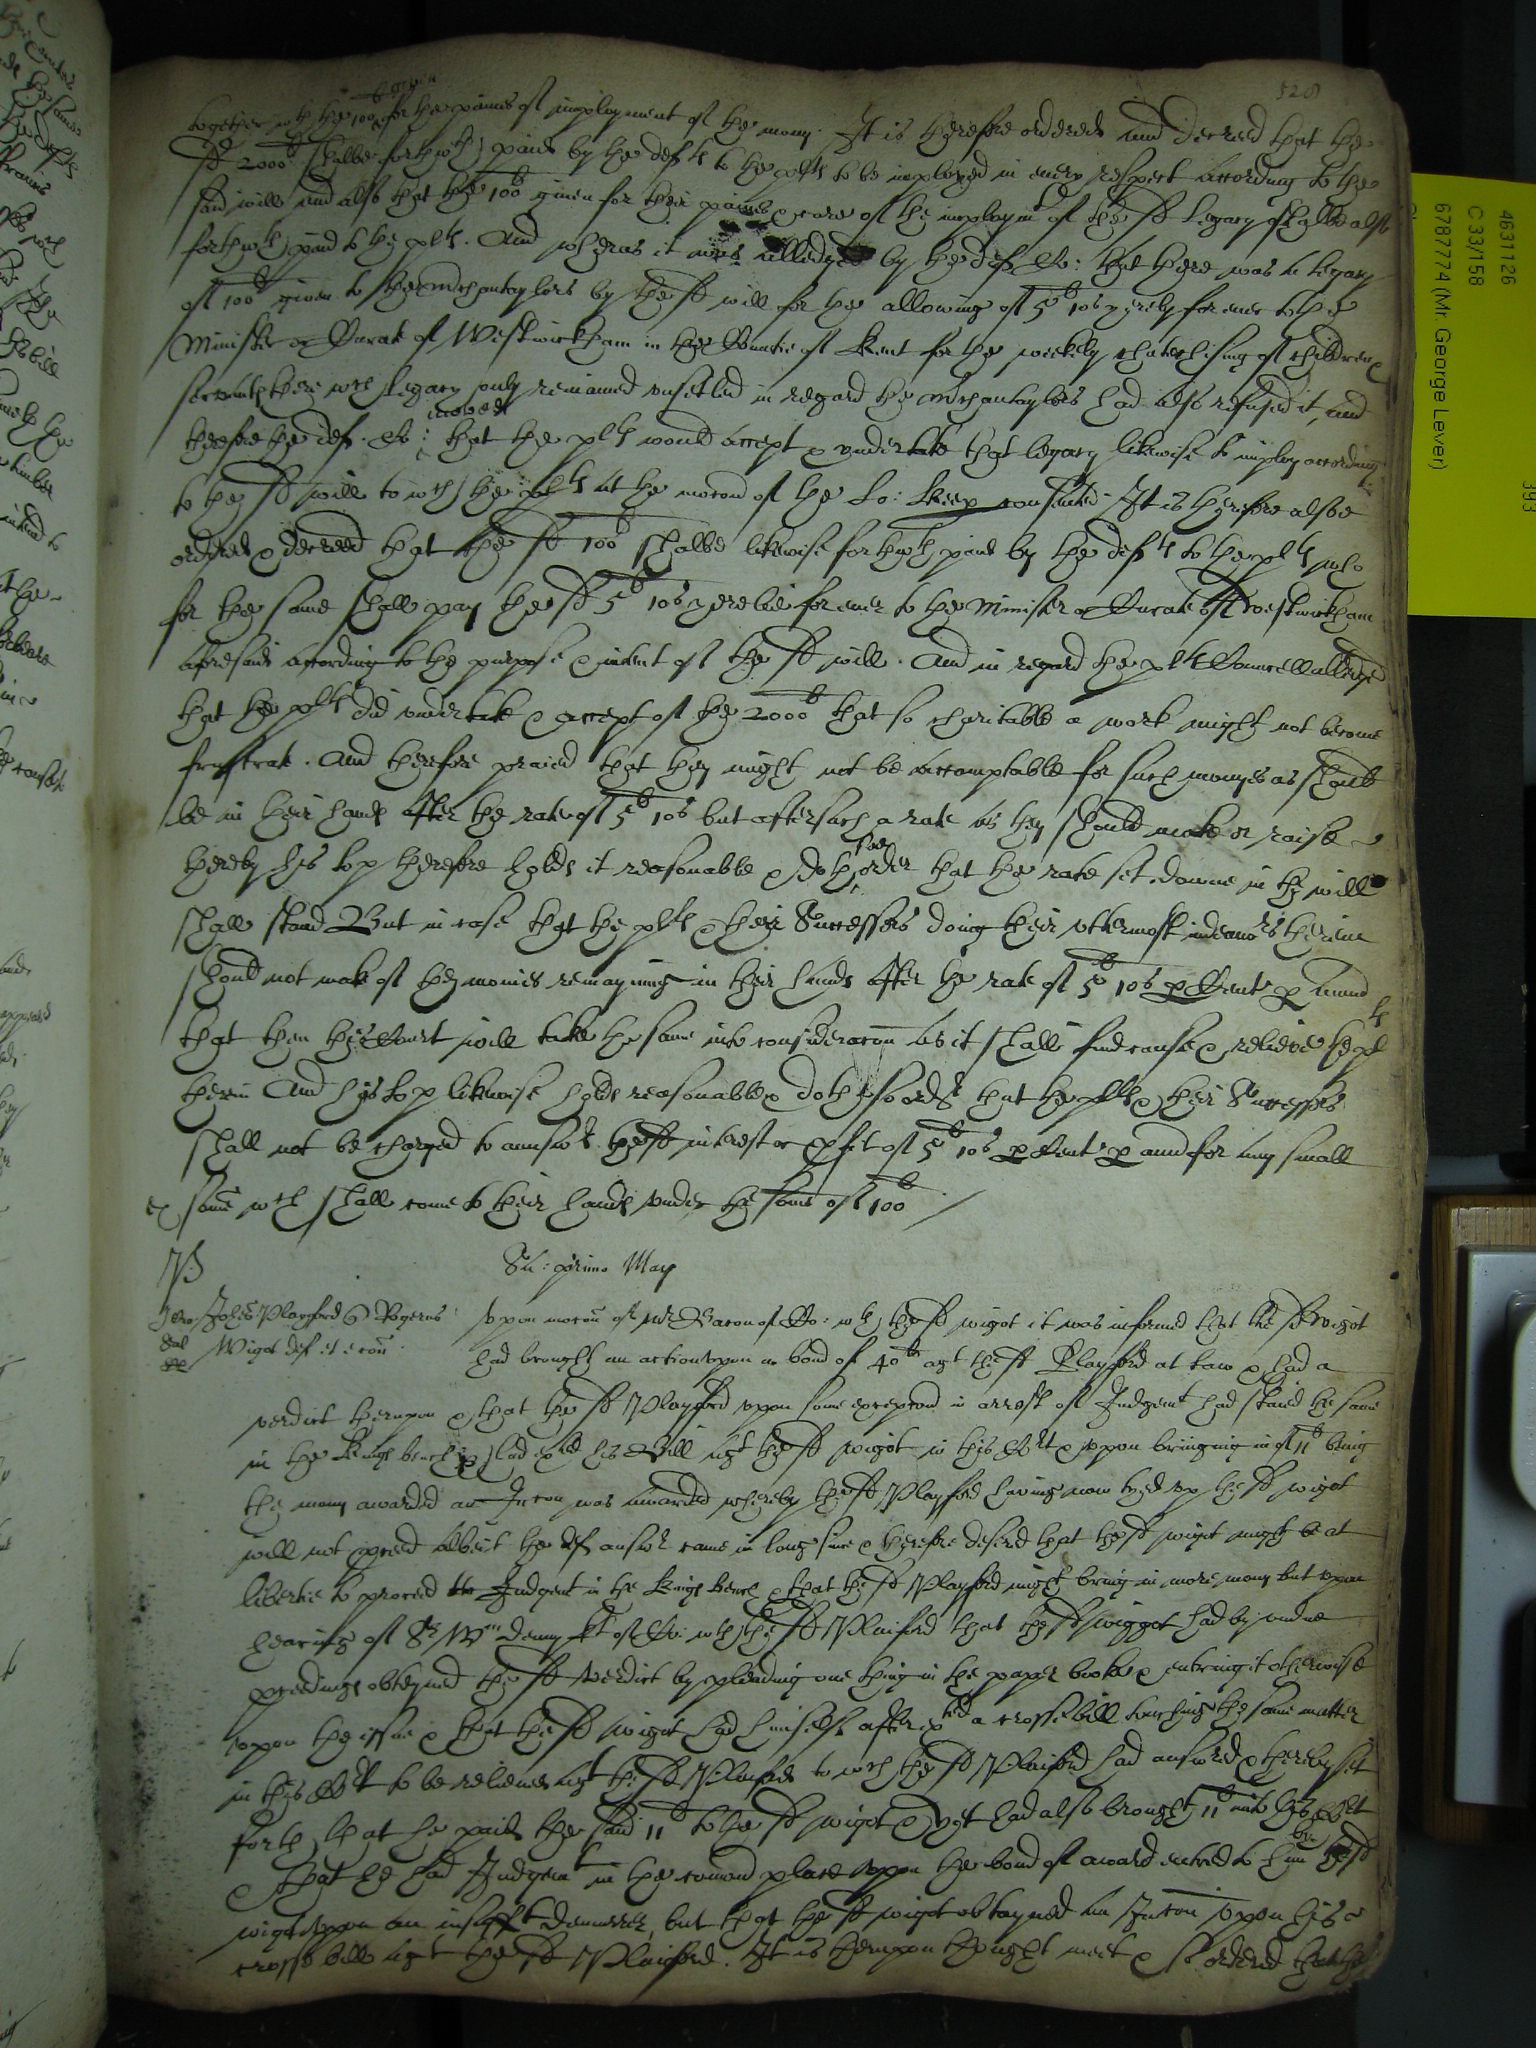 528
together wth the 100li given for the paines of imployment of the mony. It is therefore ordered and decreed that the
sd 2000li shalbe forthwth paid by the defts to the plts to be imployed in every respect according to the
said will and also that the 100li given for their paines & care of the imploymt of the sd Legacy shalbe also
forthwth paid to the plts. And wheras it was alledged by the defts Co: that there was a legacy
of 100li given to the Mrchantaylors by the sd will for the allowing of 5li 10s yerely for ever to the
Minister or Curate of Westwickham in the Countie of Kent for the weekely chatechising of children &
servants there wch Legacy only remained unsetled in regard the Mrchantaylors had also refused it, and
therefore the defts Co: moved that the plts would accept & undertake that legacy likewise to imploy according
to the sd will to wch the plts at the mocon of the Lo: Keep consented. It is therefore alsoe
ordered & decreed that the sd 100li shalbe likewise forthwth paid by the defts to the plts who
for the same shall pay the sd 5li 10s yerelie for ever to the Minister or Curate of Westwickham
aforesaid according to the purpose & intent of the sd will. And in regard the plts Councell alledged
that the plts did undertake & accept of the 2000li that so charitable a work might not become
frustrate. And therefore praied that they might not be accomptable for such monyes as should
be in their hands after the rate of 5li 10s but after such a rate as they should make or raise
thereby his Lop therefore holds it reasonable & doth soe order that the rate set downe in the will
shall stand But in case that the plts & their Successors doing their uttermost indeavors therein
should not make of the monies remayning in their hands after the rate of 5li 10s p Cent p annu
that then this Court will take the same into consideracon as it shall find cause & relieve the plts
therin And his Lop likewise holds reasonable & doth so order that the plts & their Successors
shall not be charged to answr the sd interest or pfit of 5li 10s p Cent p ann for any small
some wch shall come to their hands under the some of 100li
Sa: primo May
Johes Playford Rogerus
Wigot def et e con
Upon mocon of Mr Bacon of Co: wth the sd Wigot it was informed that the sd Wigot
had brought an action upon a bond of 40li agt the sd Playford at Law & had a
verdict therupon & that the sd Playford upon some excepcond in arrest of Judgemt had staied the same
in the Kings bench & had exd his Bill agt the sd Wigot in this Cort & upon bringing in of 11li being
the mony awarded an Iniuncon was awarded whereby the sd Playford having now tyed up the sd Wigot
will not pceed albeit the def answr came in long since & therefore desired that the sd Wigot might be at
libertie to proceed to Judgemt in the Kings Bench & that the sd Playford might bring in more mony but upon
hearing of Sr Wm Denny kt of Co: wth the sd Plaiford that the sd Wiggot had by undue
pceedings obteyned the sd verdict by pleading one thing in the paper booke & entring it otherwise
upon the issue & that the sd Wigot had himself after exed a crosse bill touching the same matter
in this Cort to be relieved agt the sd Plaiford to wch the sd Plaiford had answrd & thereby set
forth that he paid the said 11li to the sd Wigot & yet had also brought 11li into this Cort
& that he had Judgemt in the comond place upon the bond of award entred to him by the sd
Wigot upon an insufft Demurrer, but that the sd Wigot obtayned an Iniuncon upon his
crosse bill agt the sd Plaiford. It is therupon thought meet & so ordered that the
4631126
C 33/158
6787774 (Mr. George Lever)
393